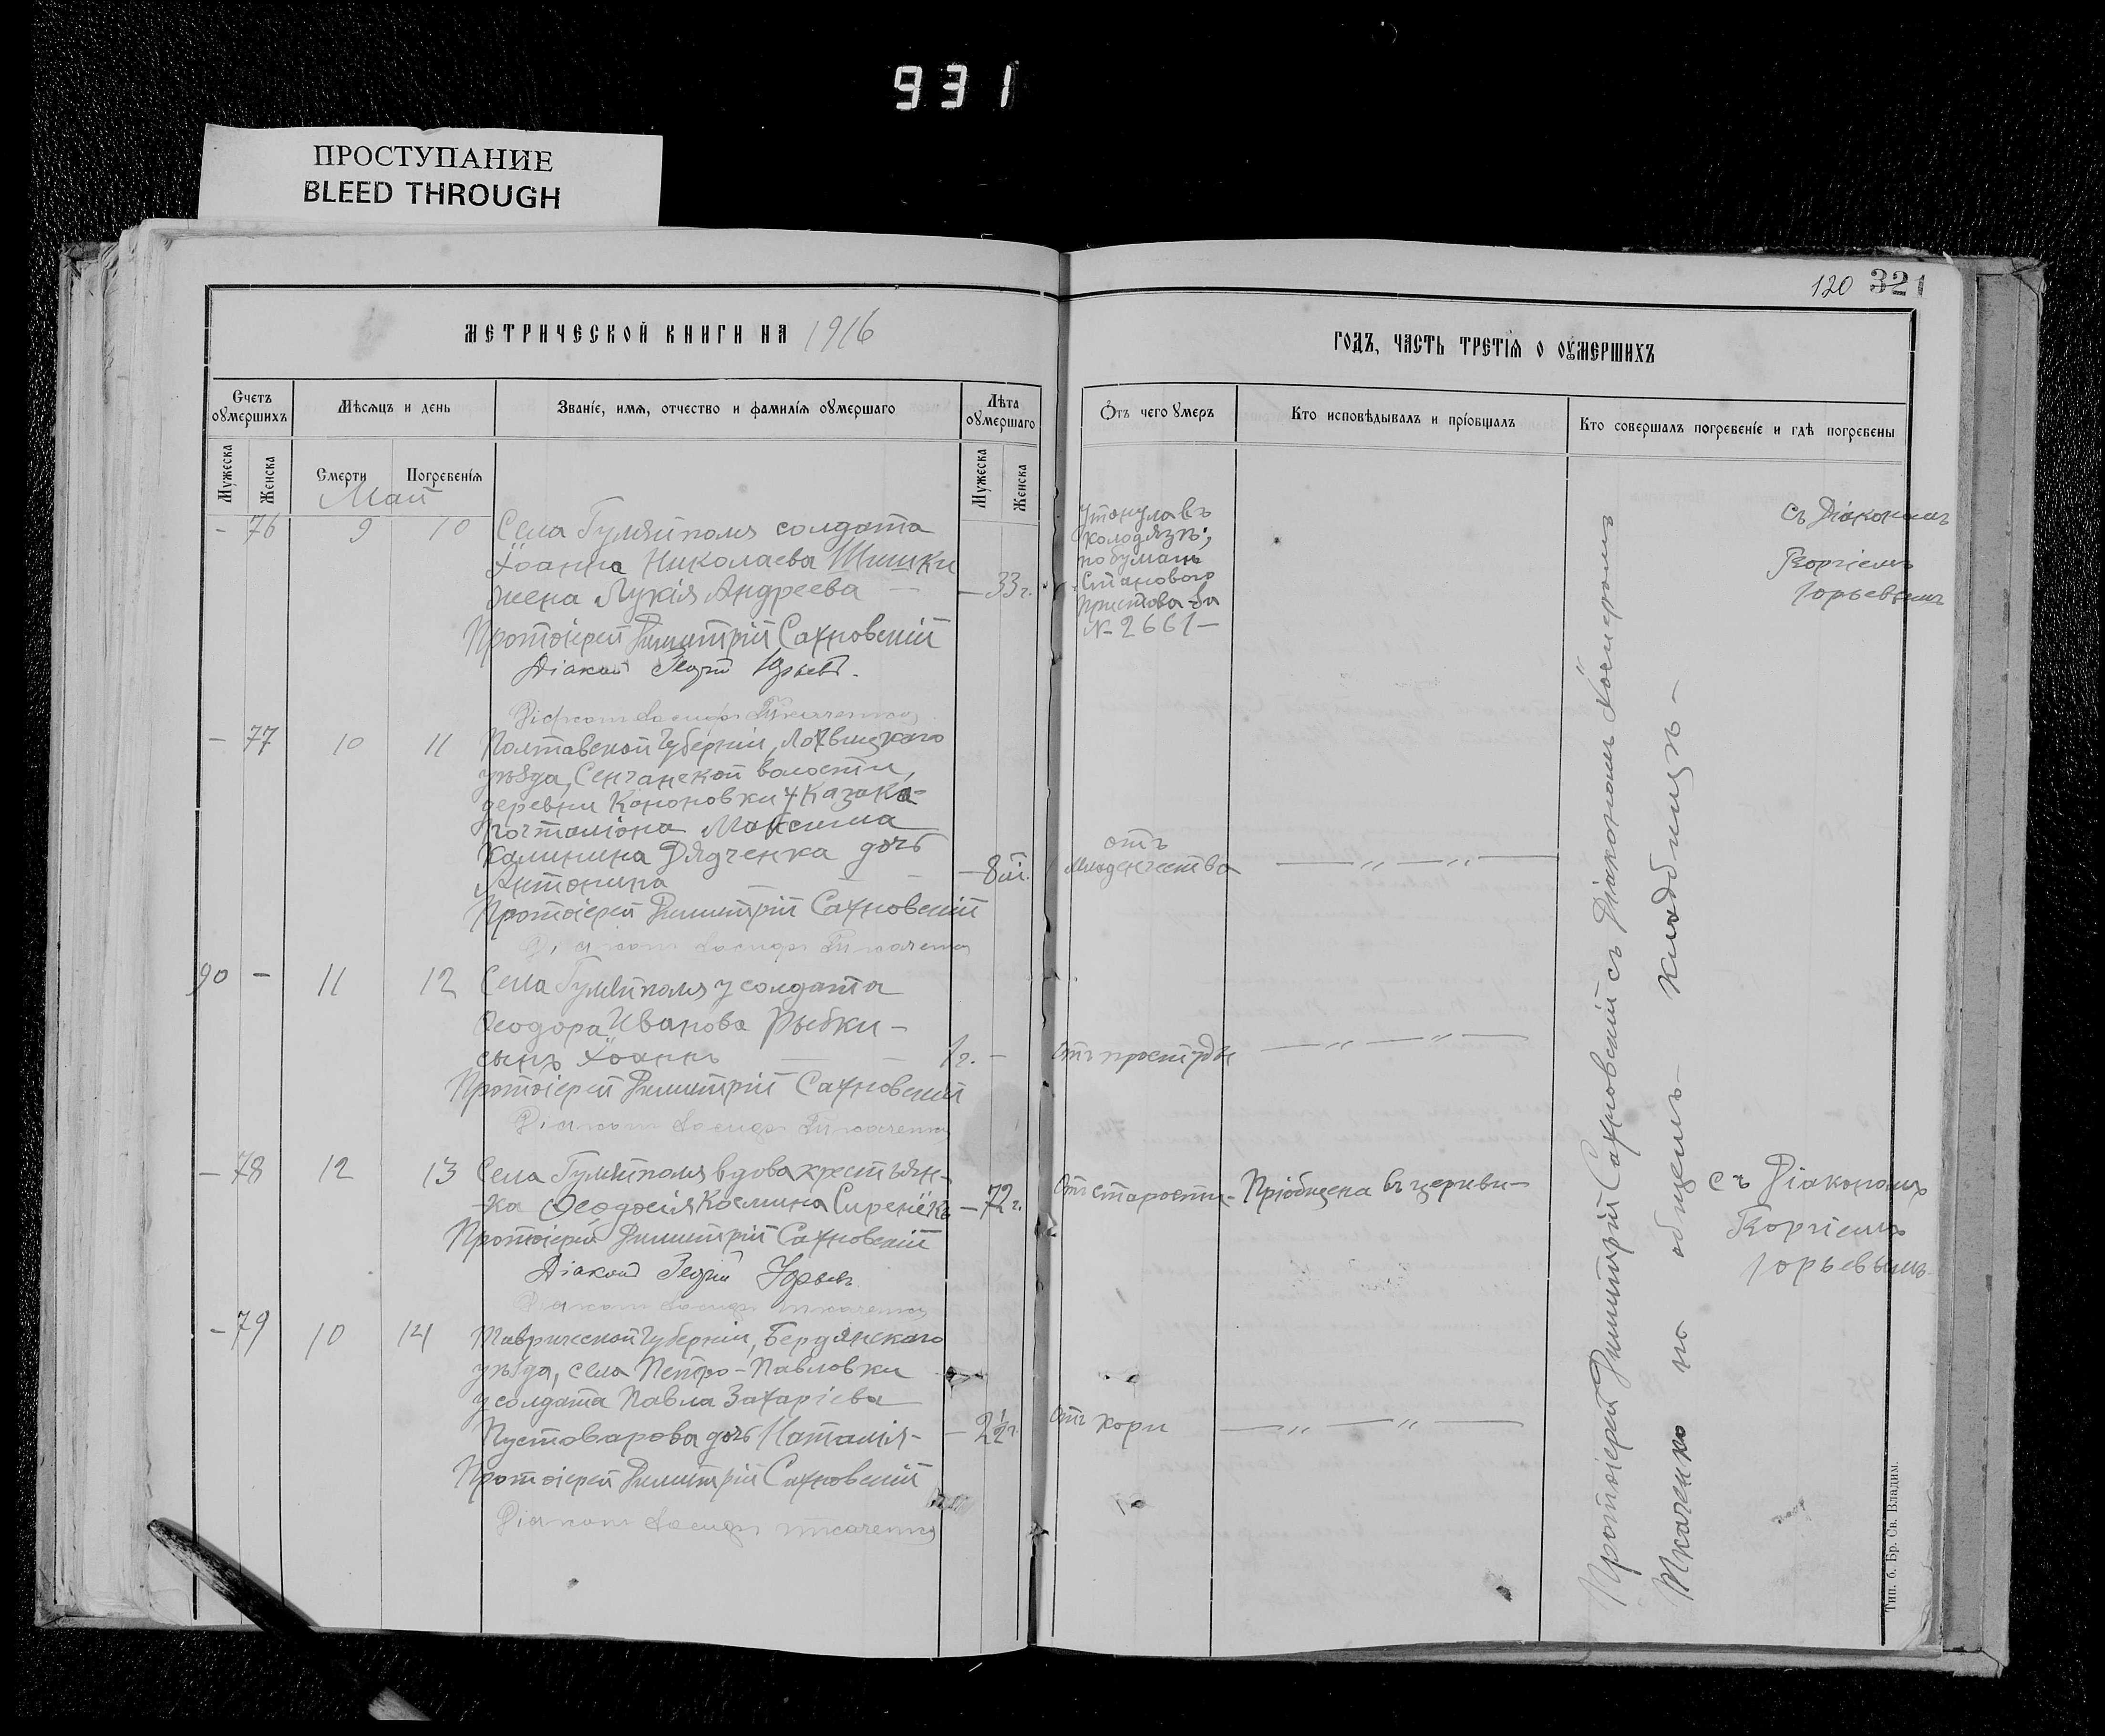 931
ПРОСТУПАНИЕ
BLEED THROUGH
120 321
МЕТРИЧЕСКОЙ КНИГИ НА 1916
ГОДЪ, ЧАСТЬ ТРЕТІЯ О ОУМЕРШИХЪ
Счетъ оумершихъ
Мѣсяцъ и день
Званіе, имя, отчество и фамилія оумершаго
Лѣта оумершаго
Отъ чего умеръ
Кто исповѣдывалъ и пріобщалъ
Кто совершалъ погребеніе и гдѣ погребены
Мужеска
Женска
Смерти
Погребенія
Мужеска
Женска
Май
- 76 9 10 Села Гуляйполя солдата
Іоанна Николаева Шишки
жена Лукія Андреева — — 33 г.
Утонула въ
колодязѣ;
по бумагѣ
Станового
Пристава за
№ 2661 —
съ Діакономъ
Георгіемъ
Юрьевымъ
Протоіерей Димитрій Сахновскій
Діаконъ Георгій Юрьевъ.
Діаконъ Іосифъ Ткаченко
- 77 10 11 Полтавской Губерніи, Лохвицкаго
уѣзда, Сенчанской волости,
деревни Кононовки у казака
почталіона Максима
Калинина Дядченка дочь
Антонина — — — 8 м.
отъ
младенчества
— „ — „ —
Протоіерей Димитрій Сахновскій
Діаконъ Іосифъ Ткаченко
90 - 11 12 Села Гуляйполя у солдата
Ѳеодора Иванова Рыбки —
сынъ Іоаннъ — — 1 г. —
отъ простуды
— „ — „ —
Протоіерей Димитрій Сахновскій
Діаконъ Іосифъ Ткаченко
- 78 12 13 Села Гуляйполя вдова крестьян-
ка Ѳеодосія Космина — 72 г.
отъ старости — Пріобщена въ церкви —
съ Діакономъ
Георгіемъ
Юрьевымъ
Протоіерей Димитрій Сахновскій
Діаконъ Георгій Юрьевъ
Діаконъ Іосифъ Ткаченко
- 79 10 14 Таврической Губерніи, Бердянскаго
уѣзда, села Петро-Павловки
у солдата Павла Захаріева
Пустоварова дочь Наталія — — 2½ г.
отъ кори
— „ — „ —
Протоіерей Димитрій Сахновскій
Діаконъ Іосифъ Ткаченко
Протоіерей Димитрій Сахновскій съ Діакономъ Іосифомъ
Ткаченко на общемъ — кладбищѣ —
Тип. б. Бр. Св. Владим.